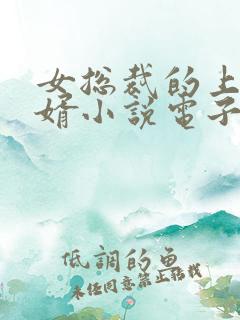 女总裁的上
婿小说电子
低調的魚
未经同意禁止转载